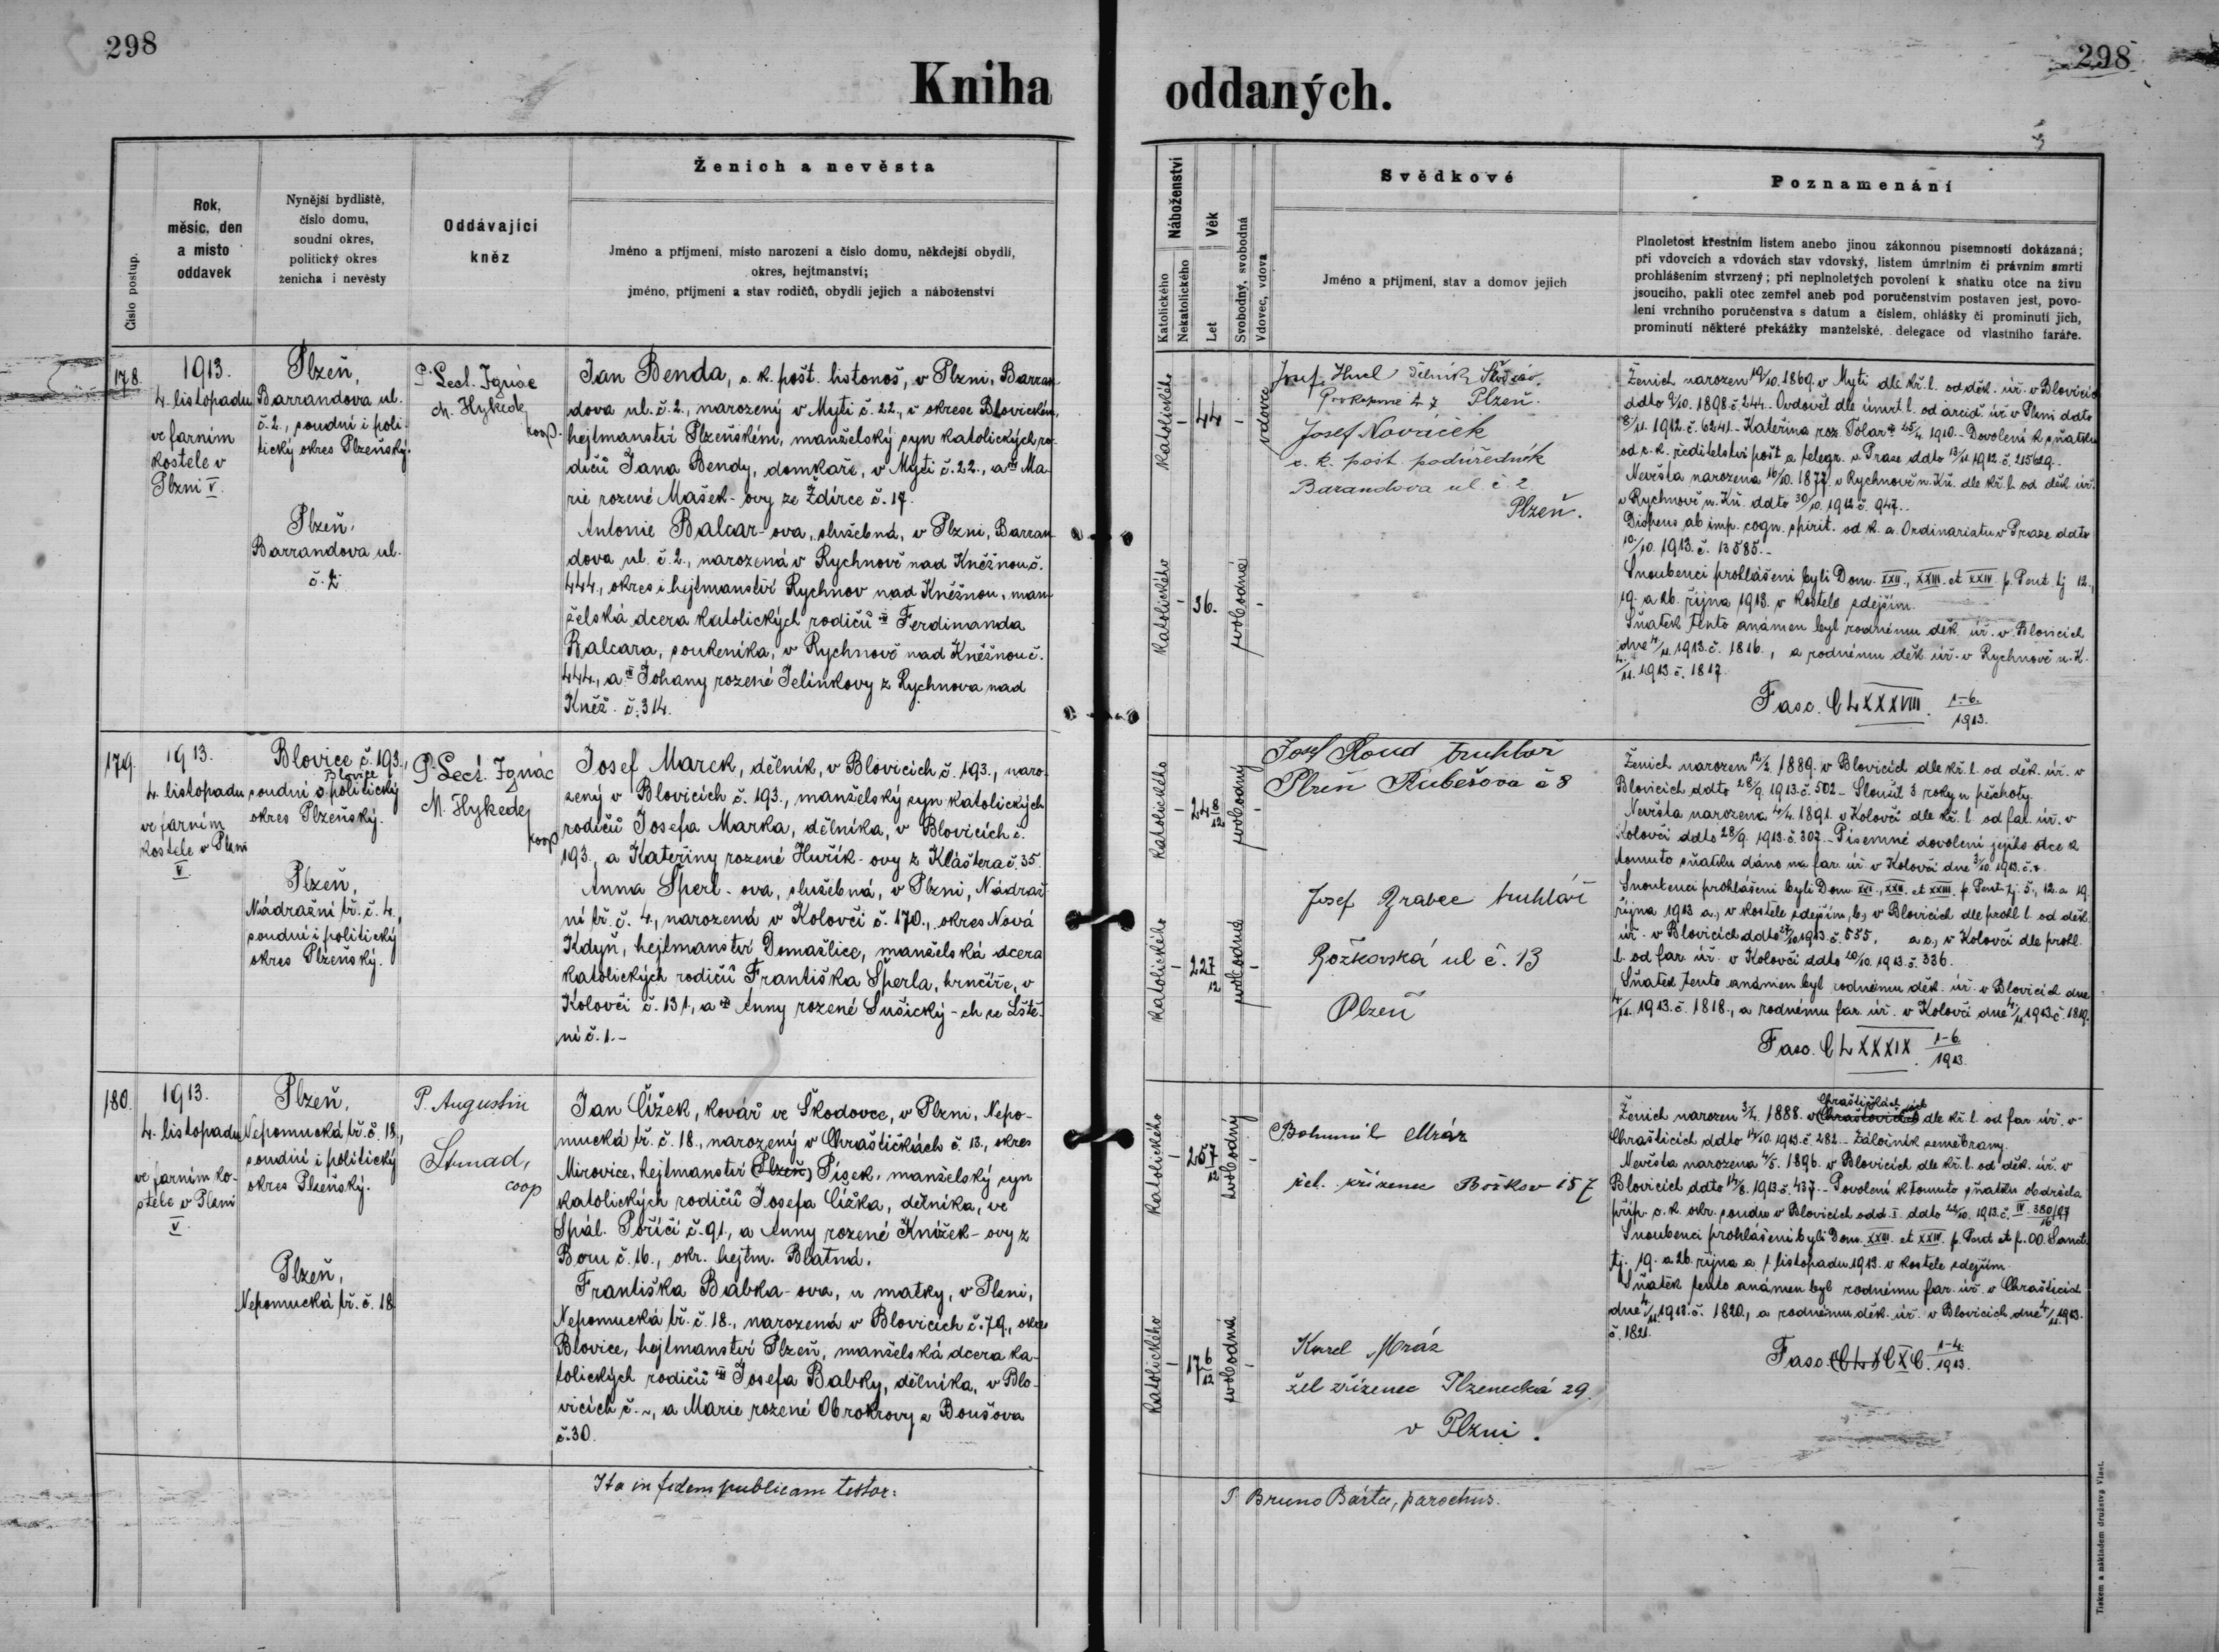 298
298
Kniha oddaných.
Číslo postup.
Rok,
měsíc, den
a místo
oddavek
Nynější bydliště,
číslo domu,
soudní okres,
politický okres
ženicha i nevěsty
Oddávající
kněz
Ženich a nevěsta
Jméno a příjmení, místo narození a číslo domu, někdejší obydlí,
okres, hejtmanství;
jméno, příjmení a stav rodičů, obydlí jejich a náboženství
Náboženství
Katolického
Nekatolického
Věk
Let
Svobodný, svobodná
Vdovec, vdova
Svědkové
Jméno a příjmení, stav a domov jejich
Poznamenání
Plnoletost křestním listem anebo jinou zákonnou písemností dokázaná;
při vdovcích a vdovách stav vdovský, listem úmrtním či právním smrti
prohlášením stvrzený; při neplnoletých povolení k sňatku otce na živu
jsoucího, pakli otec zemřel aneb pod poručenstvím postaven jest, povo-
lení vrchního poručenstva s datum a číslem, ohlášky či prominutí jich,
prominutí některé překážky manželské, delegace od vlastního faráře.
178.
1913.
4. listopadu
ve farním
kostele v
Plzni V.
Plzeň,
Barrandova ul.
č. 2., soudní i poli-
tický okres Plzeňský.
Plzeň,
Barrandova ul.
č. 2.
P. Lect. Ignác
M. Hykede,
koop.
Jan Benda, c. k. pošt. listonoš, v Plzni, Barran-
dova ul. č. 2., narozený v Mýti č. 22., v okrese Blovickém,
hejtmanství Plzeňském, manželský syn katolických ro-
dičů Jana Bendy, domkaře, v Mýti č. 22., a Ma-
rie rozené Mašek-ovy ze Ždírce č. 17.
Antonie Balcar-ova, služebná, v Plzni, Barran-
dova ul. č. 2., narozená v Rychnově nad Kněžnou č.
444., okres i hejtmanství Rychnov nad Kněžnou, man-
želská dcera katolických rodičů Ferdinanda
Balcara, soukeníka, v Rychnově nad Kněžnou č.
444., a Johany rozené Jelínkovy z Rychnova nad
Kněž. č. 314.
katolického
44
vdovec
katolického
36.
svobodná
Josef Hucl dělník
Prokopova č. 7 Plzeň.
Josef Nováček
c. k. pošt. podúředník
Barandova ul. č. 2
Plzeň.
Ženich narozen 19/10. 1869. v Mýti dle kř. l. od děk. úř. v Blovicích
ddto 9/10. 1898. č. 244. Ovdověl dle úmrt. l. od arcid. úř. v Plzni ddto
8/11. 1912. č. 6241. - Kateřina roz. Tolar 25/4. 1910. - Dovolení k sňatku
od c. k. ředitelství pošt a telegr. v Praze ddto 13/11. 1912. č. 215629.
Nevěsta narozena 16/10. 1877. v Rychnově n. Kn. dle kř. l. od děk. úř.
v Rychnově n. Kn. ddto 30/10. 1912. č. 947.
Dispens ab imp. cogn. spirit. od k. a. Ordinariatu v Praze ddto
10/10. 1913. č. 13585. -
Snoubenci prohlášeni byli Dom. XXII., XXIII. et XXIV. p. Pent. tj. 12.,
19. a 26. října 1913. v kostele zdejším.
Sňatek tento oznámen byl rodnému děk. úř. v Blovicích
dne 4/11. 1913. č. 1816., a rodnému děk. úř. v Rychnově n. K.
4/11. 1913. č. 1817.
Fasc. CLXXXVIII. 1-6. 1913.
179.
1913.
4. listopadu
ve farním
kostele v Plzni
V
Blovice č. 193.,
Blovice
soudní a politický
okres Plzeňský.
Plzeň,
Nádražní tř. č. 4.,
soudní i politický
okres Plzeňský.
P. Lect. Ignác
M. Hykede,
koop.
Josef Marek, dělník, v Blovicích č. 193., naro-
zený v Blovicích č. 193., manželský syn katolických
rodičů Josefa Marka, dělníka, v Blovicích č.
193., a Kateřiny rozené Huřík-ovy z Kláštera č. 35.
Anna Šperl-ova, služebná, v Plzni, Nádraž-
ní tř. č. 4., narozená v Kolovči č. 170., okres Nová
Kdyň, hejtmanství Domažlice, manželská dcera
katolických rodičů Františka Šperla, hrnčíře, v
Kolovči č. 131., a Anny rozené Sušický-ch ze Lště-
ní č. 1. -
katolického
24 8/12
svobodný
katolického
22 7/12
svobodná
Josef Roud truhlář
Plzeň Rubešova č 8
Josef Vrabec truhlář
Božkovská ul č. 13
Plzeň
Ženich narozen 12/2. 1889. v Blovicích dle kř. l. od děk. úř. v
Blovicích ddto 28/9. 1913. č. 502 - Sloužil 3 roky u pěchoty.
Nevěsta narozena 4/4. 1891. v Kolovči dle kř. l. od far. úř. v
Kolovči ddto 28/9. 1913. č. 307. - Písemné dovolení jejího otce k
tomuto sňatku dáno na far. úř. v Kolovči dne 3/10. 1913.
Snoubenci prohlášeni byli Dom. XXI., XXII. et XXIII. p. Pent. tj. 5., 12. a 19.
října 1913 a., v kostele zdejším, b., v Blovicích dle prohl. l. od děk.
úř. v Blovicích ddto 27/10 1913. č. 555., a c., v Kolovči dle prohl.
l. od far. úř. v Kolovči ddto 20/10. 1913. č. 336.
Sňatek tento oznámen byl rodnému děk. úř. v Blovicích dne
4/11. 1913. č. 1818., a rodnému far. úř. v Kolovči dne 4/11. 1913. č. 1819.
Fasc. CLXXXIX. 1-6. 1913.
180.
1913.
4. listopadu
ve farním ko-
stele v Plzni
V.
Plzeň,
Nepomucká tř. č. 18.,
soudní i politický
okres Plzeňský.
Plzeň,
Nepomucká tř. č. 18
P. Augustin
Strnad,
coop
Jan Čížek, kovář ve Škodovce, v Plzni, Nepo-
mucká tř. č. 18., narozený v Chraštičkách č. 13., okres
Mirovice, hejtmanství Plzeň, Písek, manželský syn
katolických rodičů Josefa Čížka, dělníka, ve
Spál. Poříčí č. 91., a Anny rozené Knížek-ovy z
Boru č. 16., okr. hejtm. Blatná.
Františka Babka-ova, u matky, v Plzni,
Nepomucká tř. č. 18., narozená v Blovicích č. 79., okres
Blovice, hejtmanství Plzeň, manželská dcera ka-
tolických rodičů Josefa Babky, dělníka, v Blo-
vicích č. ~, a Marie rozené Obrokrovy z Boušova
č. 30.
katolického
25 7/12
svobodný
katolického
17 6/12
svobodná
Bohumil Mráz
žel. zřízenec Božkov 157
Karel Mráz
žel zřízenec Plzenecká 29.
v Plzni.
Chraštičkách
Ženich narozen 3/4. 1888. v Chraštovicích dle kř. l. od far. úř. v
Chrašticích ddto 14/10. 1913. č. 282. - Záložník zeměbrany.
Nevěsta narozena 4/5. 1896. v Blovicích dle kř. l. od děk. úř. v
Blovicích ddto 14/8. 1913. č. 437. - Povolení k tomuto sňatku obdržela
příp. c. k. okr. soudu v Blovicích odd. I. ddto 22/10. 1913. č. IV 380/97 16
Snoubenci prohlášeni byli Dom. XXIII. et XXIV. p. Pent. et f. OO. Sanct.
tj. 19. a 26. října a 1 listopadu 1913. v kostele zdejším.
Sňatek tento oznámen byl rodnému far. úř. v Chrašticích
dne 4/11. 1913. č. 1820., a rodnému děk. úř. v Blovicích dne 4/11. 1913.
č. 1821.
Fasc. CXC. 1-4. 1913.
Ita in fidem publicam testor:
P. Bruno Bárta, parochus.
Tiskem a nákladem družstva Vlast.